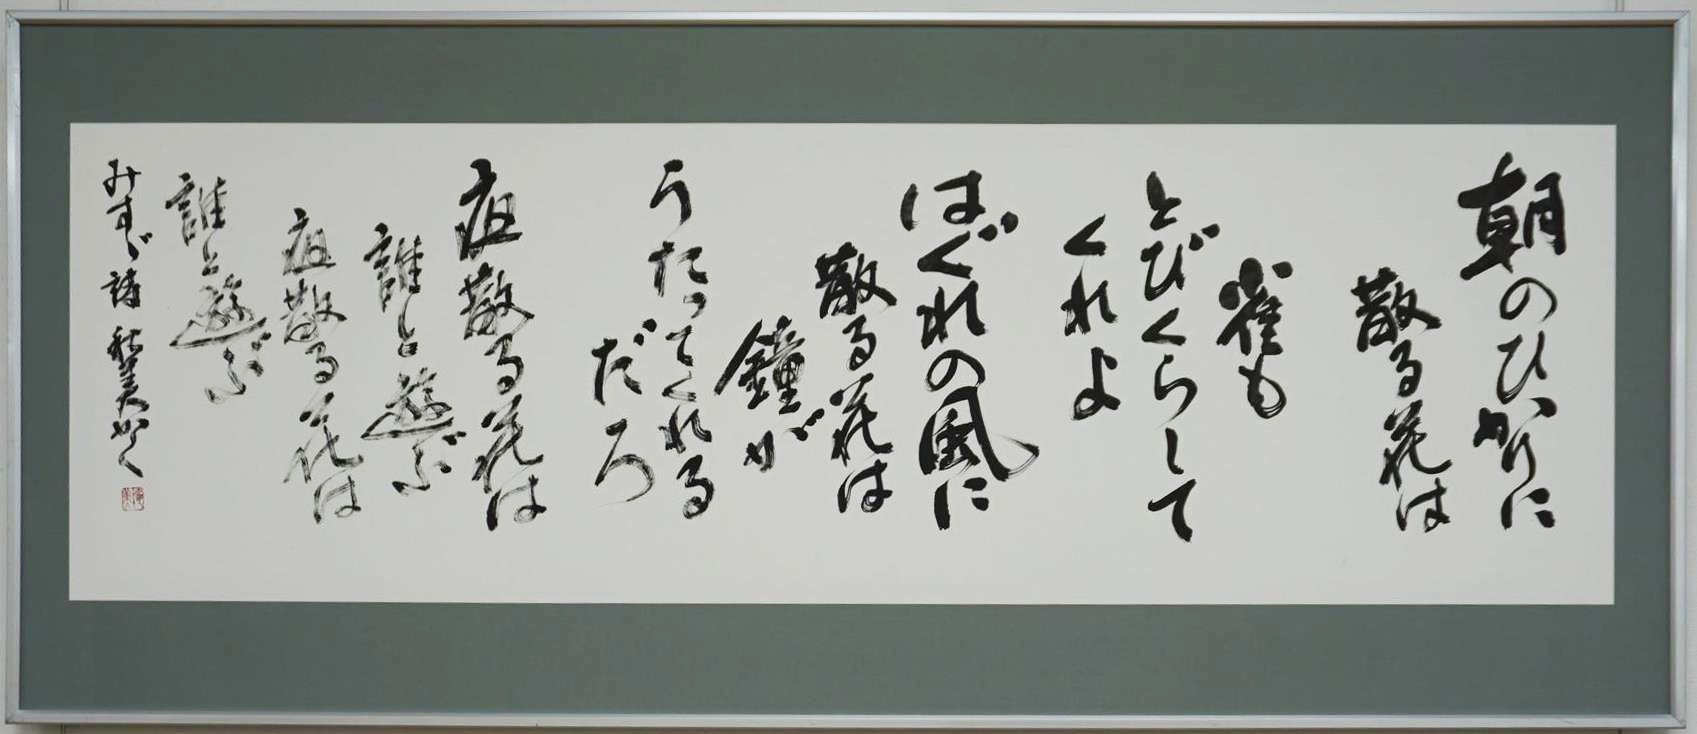 朝のひかりに
散る花は
雀も
とびくらして
くれよ
はぐれの風に
散る花は
鐘が
うたってくれる
だろ
夜散る花は
誰と遊ぶ
夜散る花は
誰と遊ぶ
みすゞ詩 かく